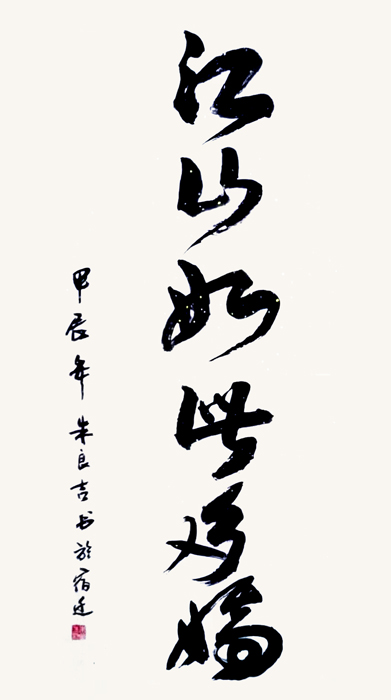 江山如此多娇
甲辰年朱良吉书於宿迁